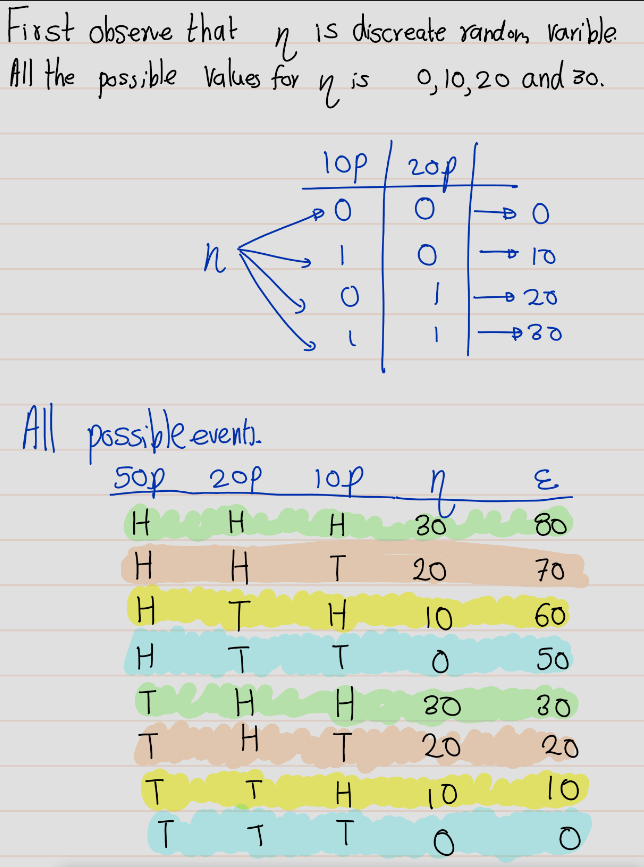 First observe that η is discreate random varible.
All the possible values for η is 0, 10, 20 and 30.
10p 20p
0 0 → 0
η 1 0 → 10
0 1 → 20
1 1 → 30
All possible events.
50p 20p 10p η ε
H H H 30 80
H H T 20 70
H T H 10 60
H T T 0 50
T H H 30 30
T H T 20 20
T T H 10 10
T T T 0 0